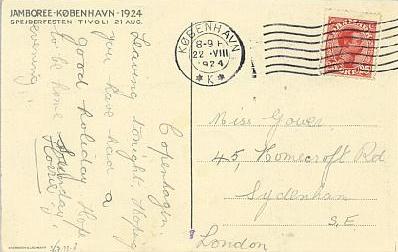 JAMBOREE·KØBENHAVN·1924
SPEJDERFESTEN TIVOLI 21 AUG.
Copenhagen.
Leaving tonight. Hoping
you have had a
good holiday. Hope
to be home Sunday
evening.
Howie
KØBENHAVN
8-9 F
22 ·VIII
1924
*K*
25
Miss Gower
45, Homecroft Rd
Sydenham
S.E.
London